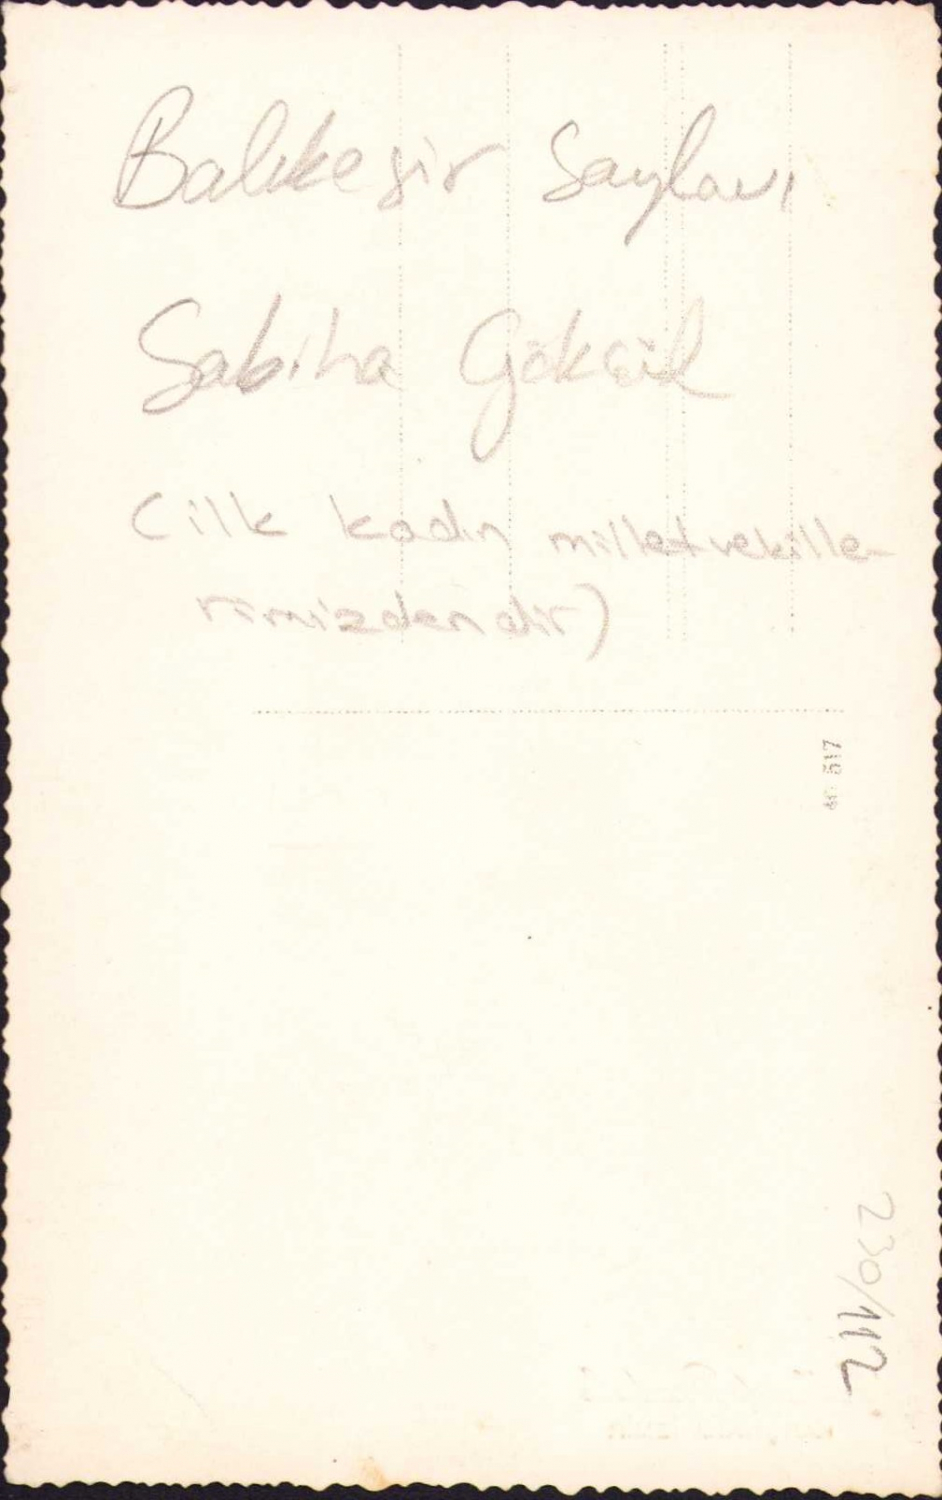 Balıkesir Saylavı
Sabiha Gökçül
(ilk kadın milletvekille-
rimizdendir)
517
230/112